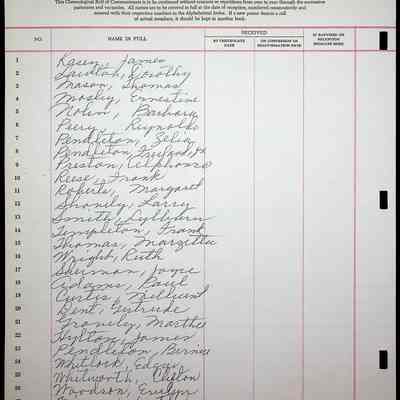 This Chronological Roll of Communicants is to be continued without erasures or repetitions from year to year through the successive
pastorates and vacancies. All names are to be entered in full at the date of reception, numbered consecutively and
entered with their respective numbers in the Alphabetical Index. If a new pastor desires a roll
of actual members, it should be kept in another book.
RECEIVED
NO. NAME IN FULL BY CERTIFICATE DATE ON CONFESSION OR REAFFIRMATION DATE IF BAPTIZED ON RECEPTION INDICATE HERE
1 James
2 Dorothy
3 Mason, Thomas
4 Mosley, Ernestine
5 Barbara
6 Perry, Reynolds
7 Pendleton, Zelia
8 Pendleton, Jr.
9 Preston, Alphonso
10 Reese, Frank
11 Roberts, Margaret
12 Larry
13 Smith,
14 Templeton, Frank
15 Thomas, Marzetta
16 Wright, Ruth
17 Sherman, Joyce
18 Adams, Paul
19 Curtis,
20 Bent, Gertrude
21 Martha
22 Hylton, James
23 Pendleton, Bernice
24 Whitlock,
25 Whitworth,
26 Woodson, Evelyn